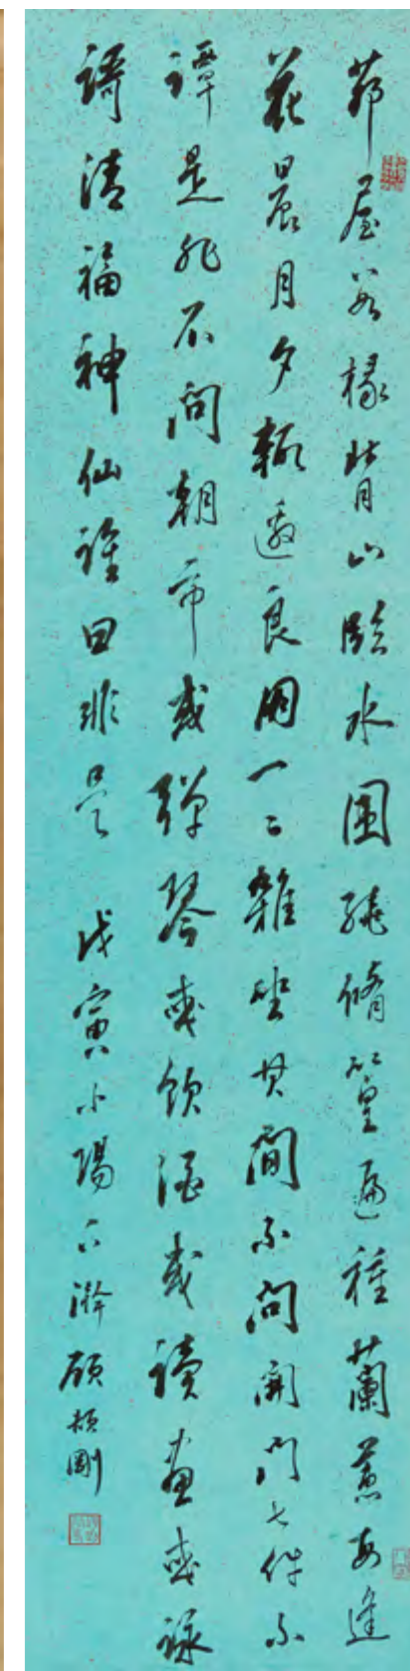 茆屋數椽背山臨水圍繞脩篁遍種蘭蕙每逢
花晨月夕輒邀良朋一二雜坐其間不問開門七件不
譚是非不問朝市或彈琴或飲酒或讀畫或詠
詩清福神仙誰曰非是 戊寅小陽下澣顧頡剛